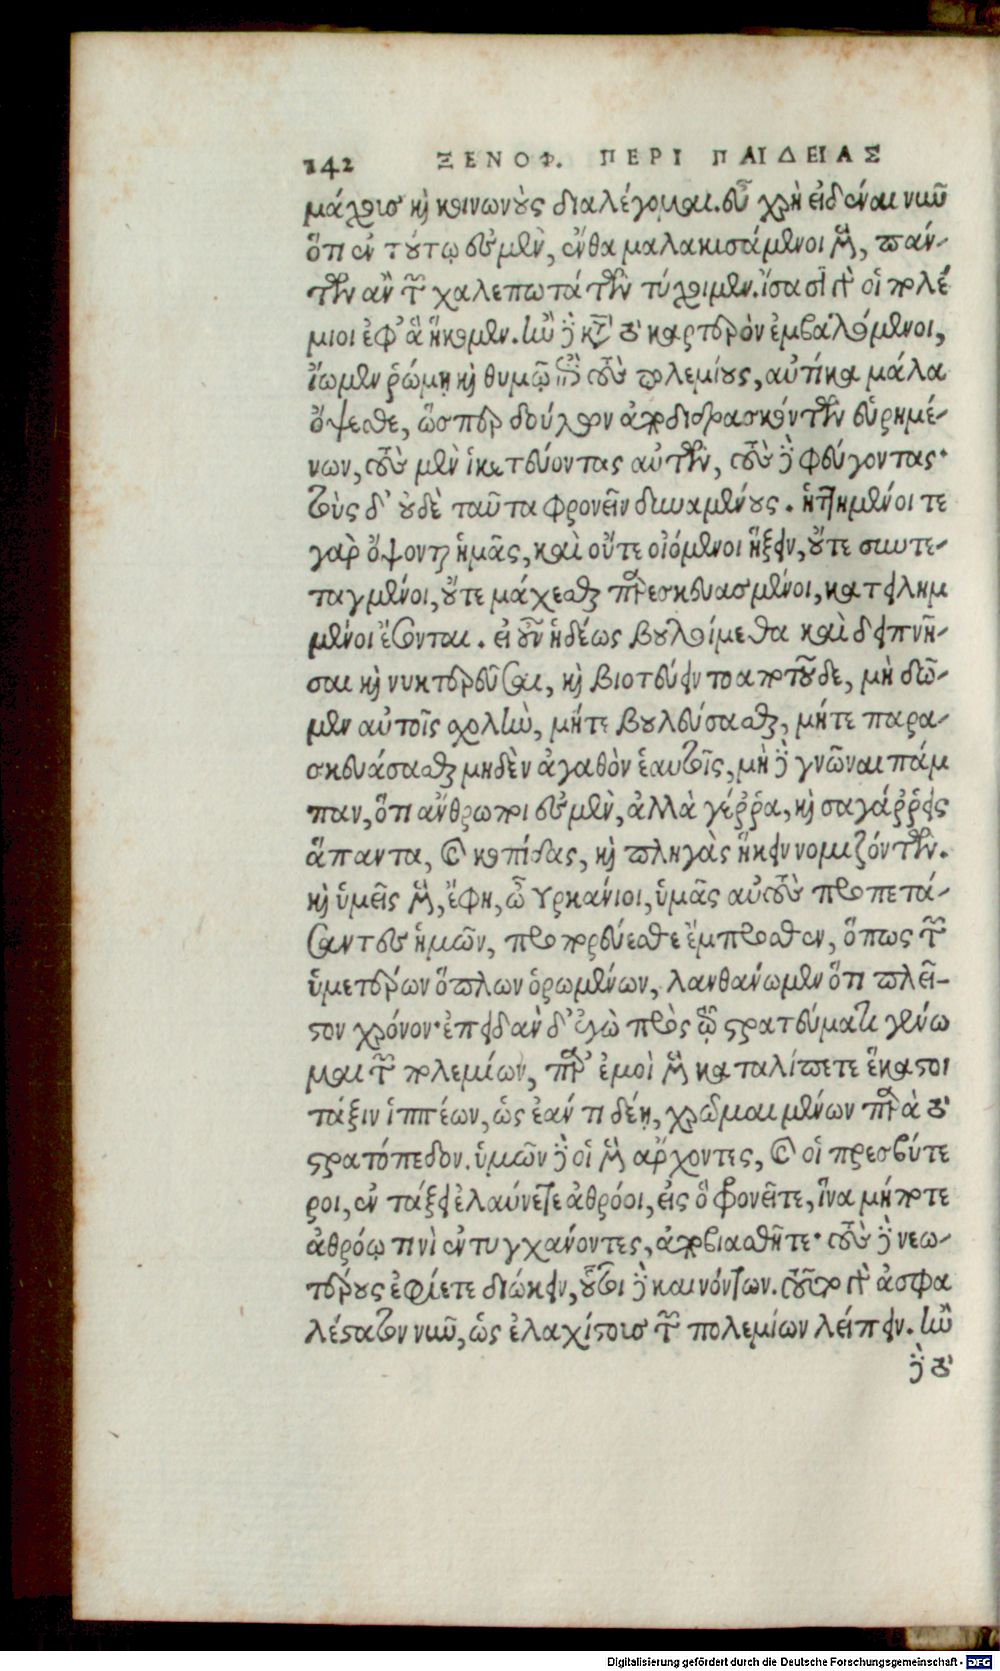 142 ΞΕΝΟΦ. ΠΕΡΙ ΠΑΙΔΕΙΑΣ
μάχοισ καὶ κοινωνοὺς διαλέγομαι. εὖ χρὴ εἰδέναι νιῦ
ὅτι ἐν τούτῳ ἐσμὲν, ἔνθα μαλακισάμενοι μὲν, πάν-
των ἂν τῶν χαλεπωτάτων τύχοιμεν. ἴσασι γὰρ οἱ πολέ
μιοι ἐφ' ἃ ἥκομεν. ἢν δὲ κατὰ τὸ καρτερὸν ἐμβαλόμενοι,
ἴωμεν ῥώμῃ καὶ θυμῷ ἐπὶ τοὺς πολεμίους, αὐτίκα μάλα
ὄψεσθε, ὥσπερ δούλων ἀποδιδρασκόντων εὑρημέ-
νων, τοὺς μὲν ἱκετεύοντας αὐτῶν, τοὺς δὲ φεύγοντας·
τοὺς δ' οὐδὲ ταῦτα φρονεῖν δυναμένους. ἡττημένοι τε
γὰρ ὄψονται ἡμᾶς, καὶ οὔτε οἰόμενοι ἥξειν, οὔτε συντε-
ταγμένοι, οὔτε μάχεσθαι παρεσκευασμένοι, κατειλημ
μένοι ἔσονται. εἰ οὖν ἡδέως βουλοίμεθα καὶ δειπνῆ-
σαι καὶ νυκτερεῦσαι, καὶ βιοτεύειν τοαποτοῦδε, μὴ δῶ-
μεν αὐτοῖς σχολὴν, μήτε βουλεύσασθαι, μήτε παρα-
σκευάσασθαι μηδὲν ἀγαθὸν ἑαυτοῖς, μὴ δὲ γνῶναι πάμ
παν, ὅτι ἄνθρωποι ἐσμὲν, ἀλλὰ γέῤῥα, καὶ σαγάῤῥεις
ἅπαντα, καὶ κοπίδας, καὶ πληγὰς ἥκειν νομιζόντων.
καὶ ὑμεῖς μὲν, ἔφη, ὦ Υρκάνιοι, ὑμᾶς αὐτοὺς προπετά-
σαντες ἡμῶν, προπορεύεσθε ἔμπροσθεν, ὅπως τῶν
ὑμετέρων ὅπλων ὁρωμένων, λανθάνωμεν ὅτι πλεῖ-
στον χρόνον· ἐπειδὰν δ' ἐγὼ πρὸς τῷ στρατεύματι γένω
μαι τῶν πολεμίων, παρ' ἐμοὶ μὲν καταλίπετε ἕκαστοι
τάξιν ἱππέων, ὡς ἐάν τι δέῃ, χρῶμαι μένων παρὰ τὸ
στρατόπεδον. ὑμῶν δὲ οἱ μὲν ἄρχοντες, καὶ οἱ πρεσβύτε
ροι, ἐν τάξει ἐλαύνετε ἀθρόοι, εἰς ὃ φονεῖτε, ἵνα μήποτε
ἀθρόῳ τινὶ ἐντυγχάνοντες, ἀποβιασθῆτε· τοὺς δὲ νεω-
τέρους ἐφίετε διώκειν, οὗτοι δὲ καινόντων. τοῦτο γὰρ ἀσφα
λέστατον νιῦ, ὡς ἐλαχίστοισ τῶν πολεμίων λείπειν. ἢν
δὲ τὸ
Digitalisierung gefördert durch die Deutsche Forschungsgemeinschaft - DFG